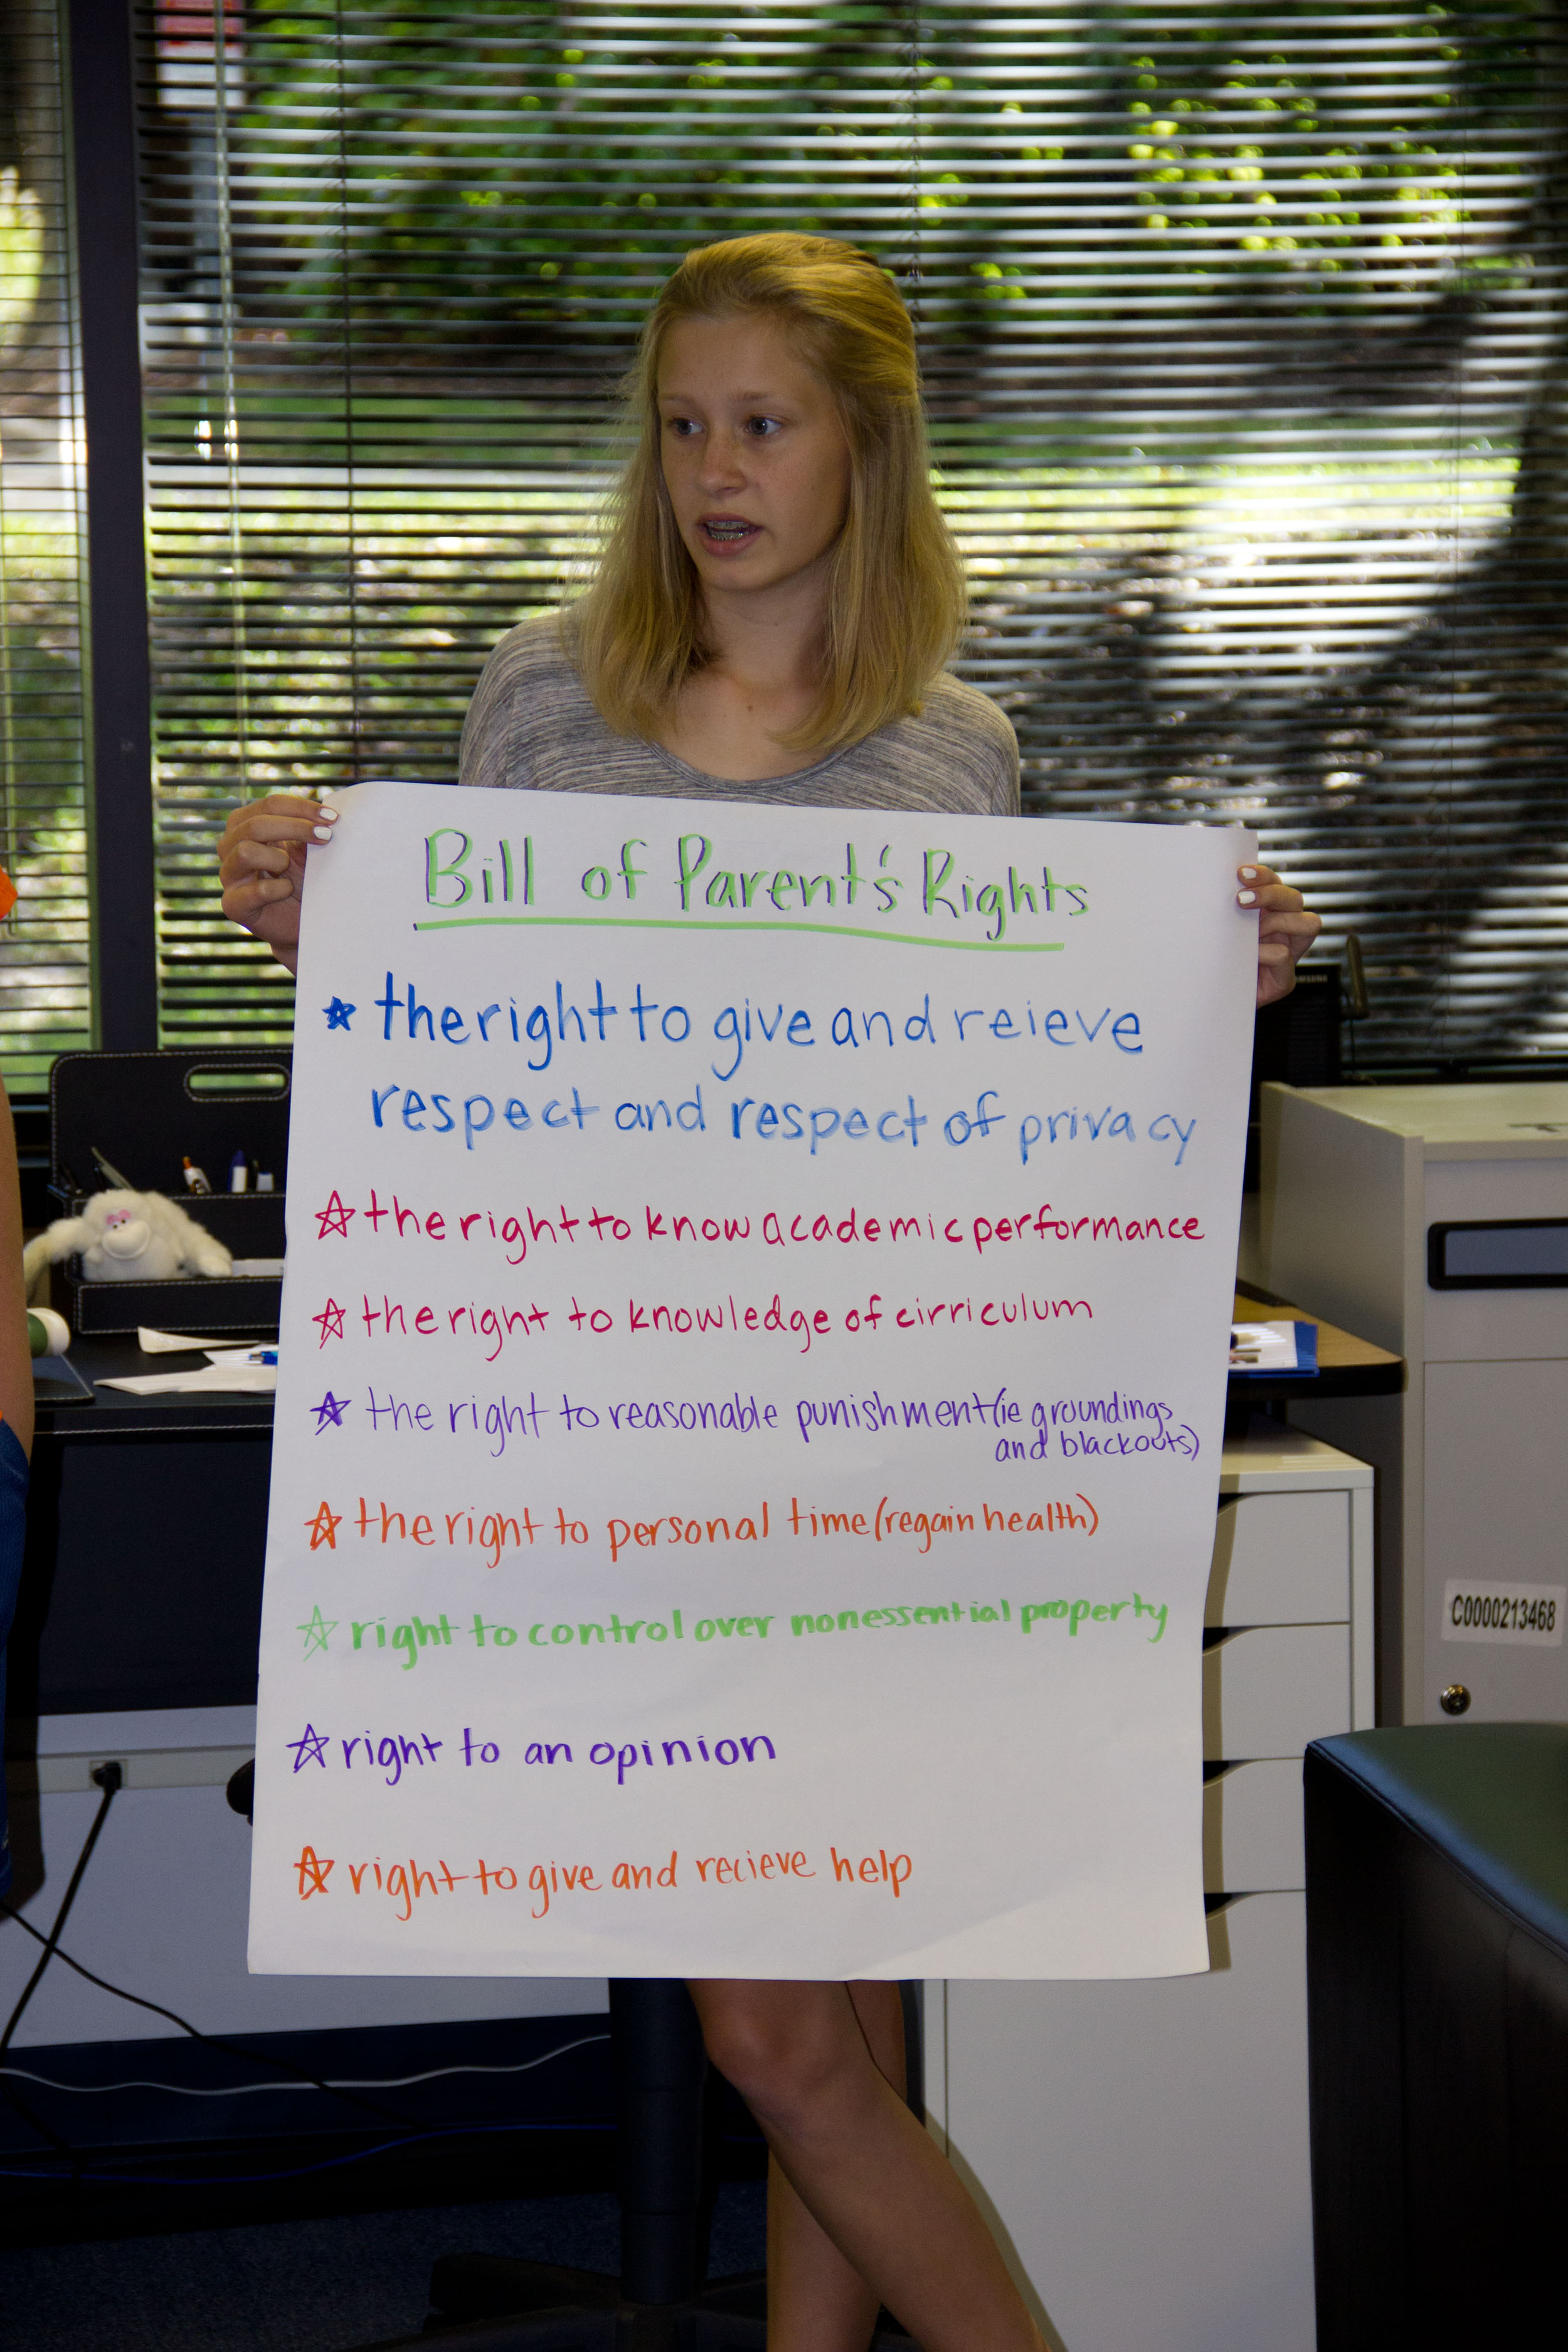 Bill of Parent's Rights
the right to give and reieve
respect and respect of privacy
the right to know academic performance
the right to knowledge of cirriculum
the right to reasonable punishment (ie groundings
and blackouts)
the right to personal time (regain health)
right to control over nonessential property
right to an opinion
right to give and recieve help
C0000213468